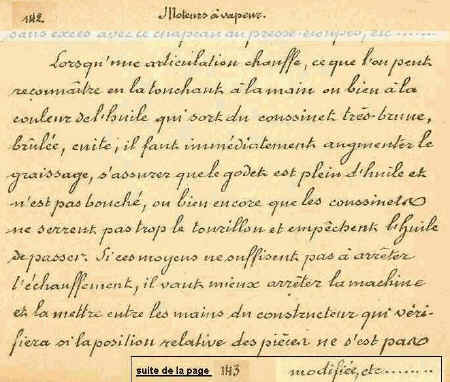 142 Moteurs à vapeur.
sans excès avec ce chapeau du presse-étoupes, etc .......
Lorsqu'une articulation chauffe, ce que l'on peut
reconnaître en la touchant à la main ou bien à la
couleur de l'huile qui sort du coussinet très brune,
brûlée, cuite, il faut immédiatement augmenter le
graissage, s'assurer que le godet est plein d'huile et
n'est pas bouché, ou bien encore que les coussinets
ne serrent pas trop le tourillon et empêchent l'huile
de passer. Si ces moyens ne suffisent pas à arrêter
l'échauffement, il vaut mieux arrêter la machine
et la mettre entre les mains du constructeur qui véri-
fiera si la position relative des pièces ne s'est pas
suite de la page 143 modifiée, etc .......